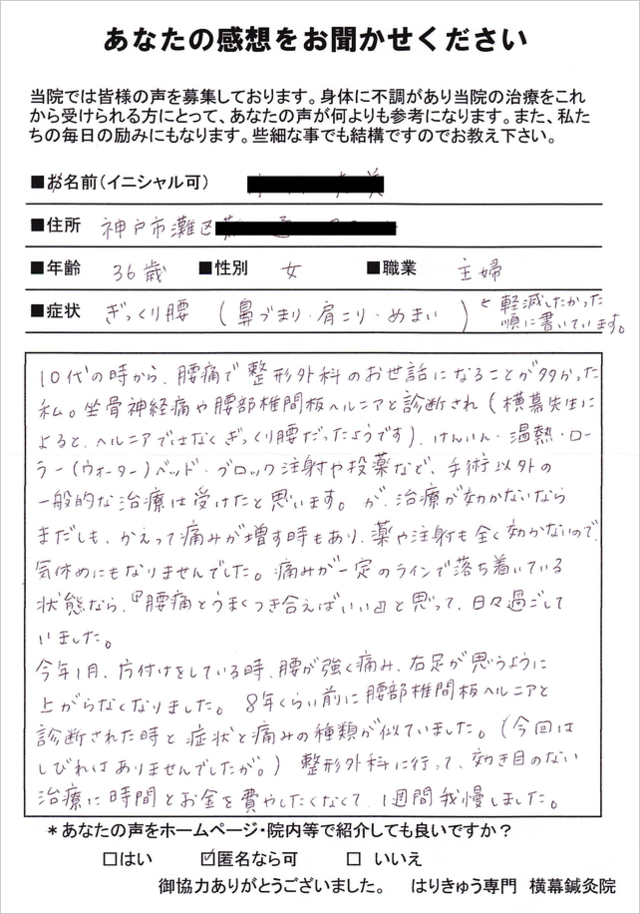 あなたの感想をお聞かせください
当院では皆様の声を募集しております。身体に不調があり当院の治療をこれ
から受けられる方にとって、あなたの声が何よりも参考になります。また、私た
ちの毎日の励みにもなります。些細な事でも結構ですのでお教え下さい。
■お名前(イニシャル可)
■住所 神戸市灘区
■年齢 36歳 ■性別 女 ■職業 主婦
■症状 ぎっくり腰 (鼻づまり・肩こり・めまい) ← 軽減したかった
順に書いています。
10代の時から、腰痛で整形外科のお世話になることが多かった
私。坐骨神経痛や腰部椎間板ヘルニアと診断され(横幕先生に
よると、ヘルニアではなくぎっくり腰だったようです)、けんいん・温熱・ロー
ラー(ウォーター)ベッド・ブロック注射や投薬など、手術以外の
一般的な治療は受けたと思います。が、治療が効かないなら
まだしも、かえって痛みが増す時もあり、薬や注射も全く効かないので、
気休めにもなりませんでした。痛みが一定のラインで落ち着いている
状態なら、『腰痛とうまくつき合えばいい』と思って、日々過ごして
いました。
今年1月、片付けをしている時、腰が強く痛み、右足が思うように
上がらなくなりました。8年くらい前に腰部椎間板ヘルニアと
診断された時と症状と痛みの種類が似ていました。(今回は
しびれはありませんでしたが。)整形外科に行って、効き目のない
治療に時間とお金を費やしたくなくて、1週間我慢しました。
*あなたの声をホームページ・院内等で紹介しても良いですか?
□はい ☑匿名なら可 □ いいえ
御協力ありがとうございました。 はりきゅう専門 横幕鍼灸院